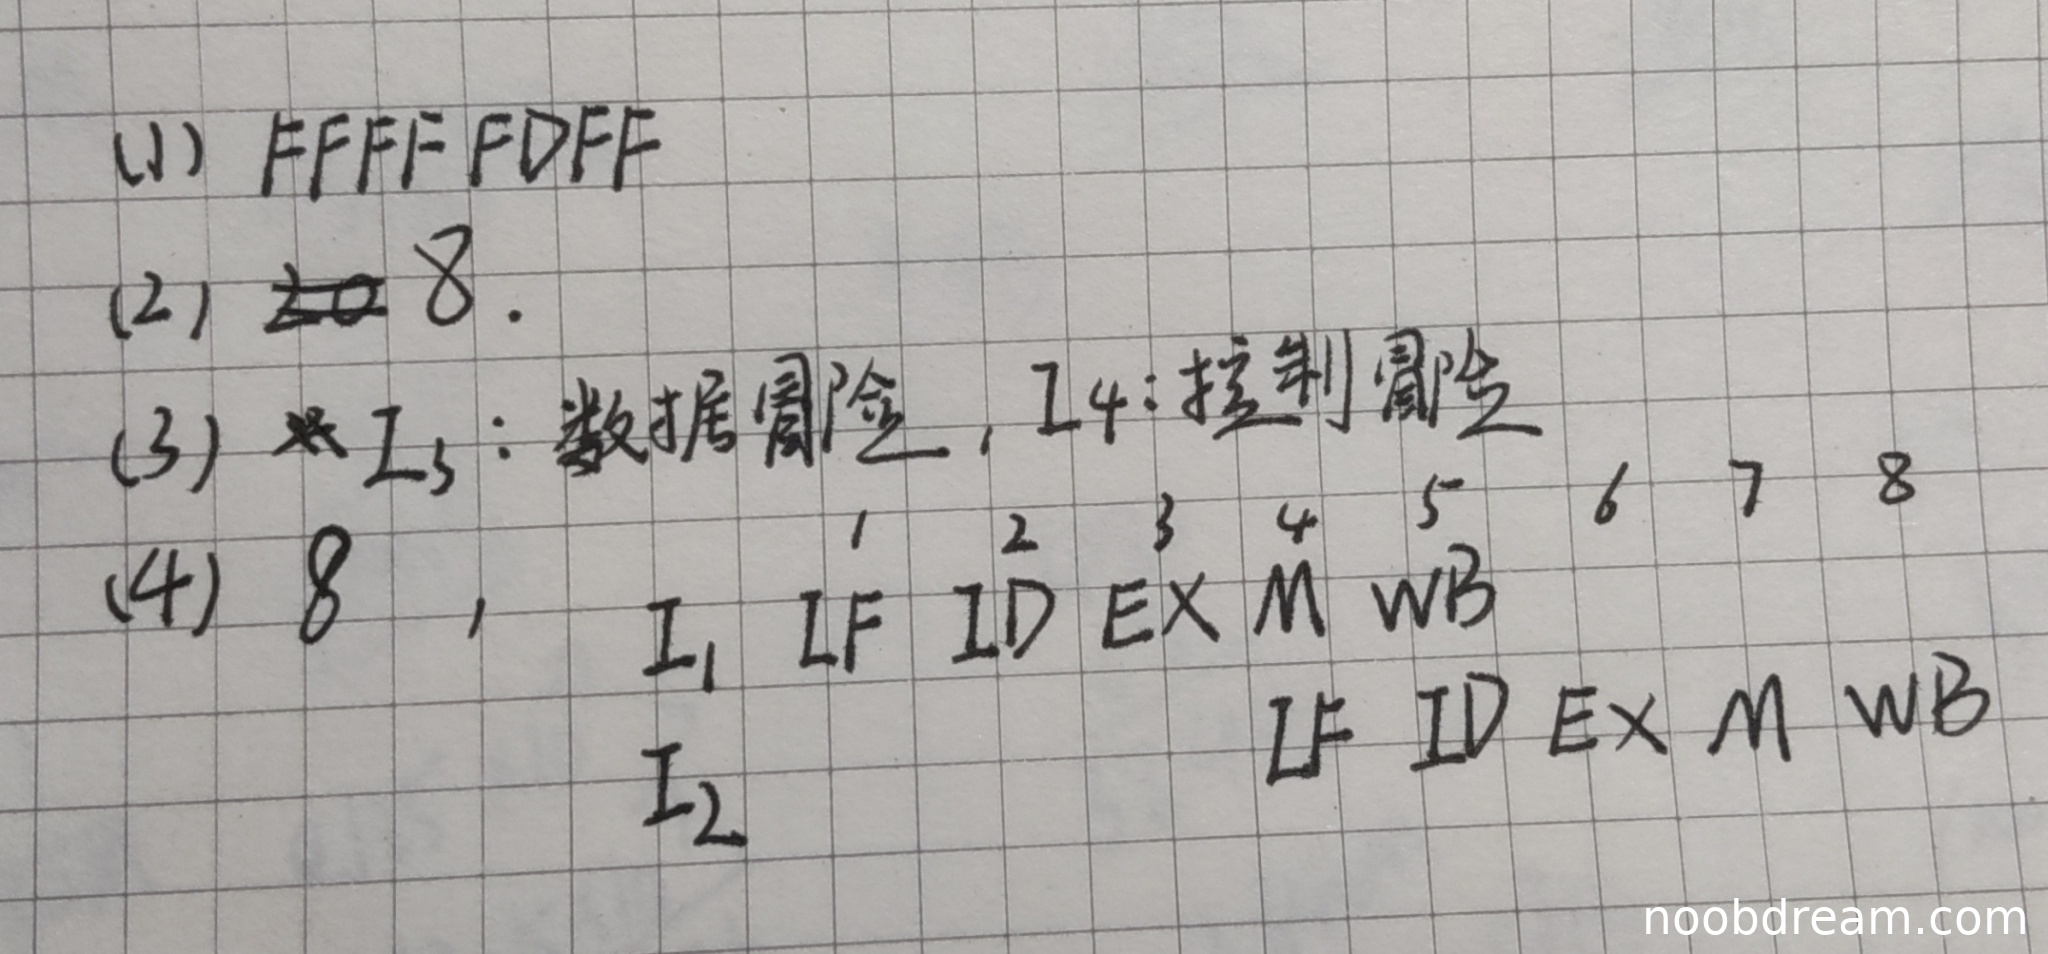 (1) FFFF FDFF
(2) 20 8.
(3) I3: 数据冒险, I4: 控制冒险
1 2 3 4 5 6 7 8
(4) 8, I1 IF ID EX M WB
I2 IF ID EX M WB
noobdream.com